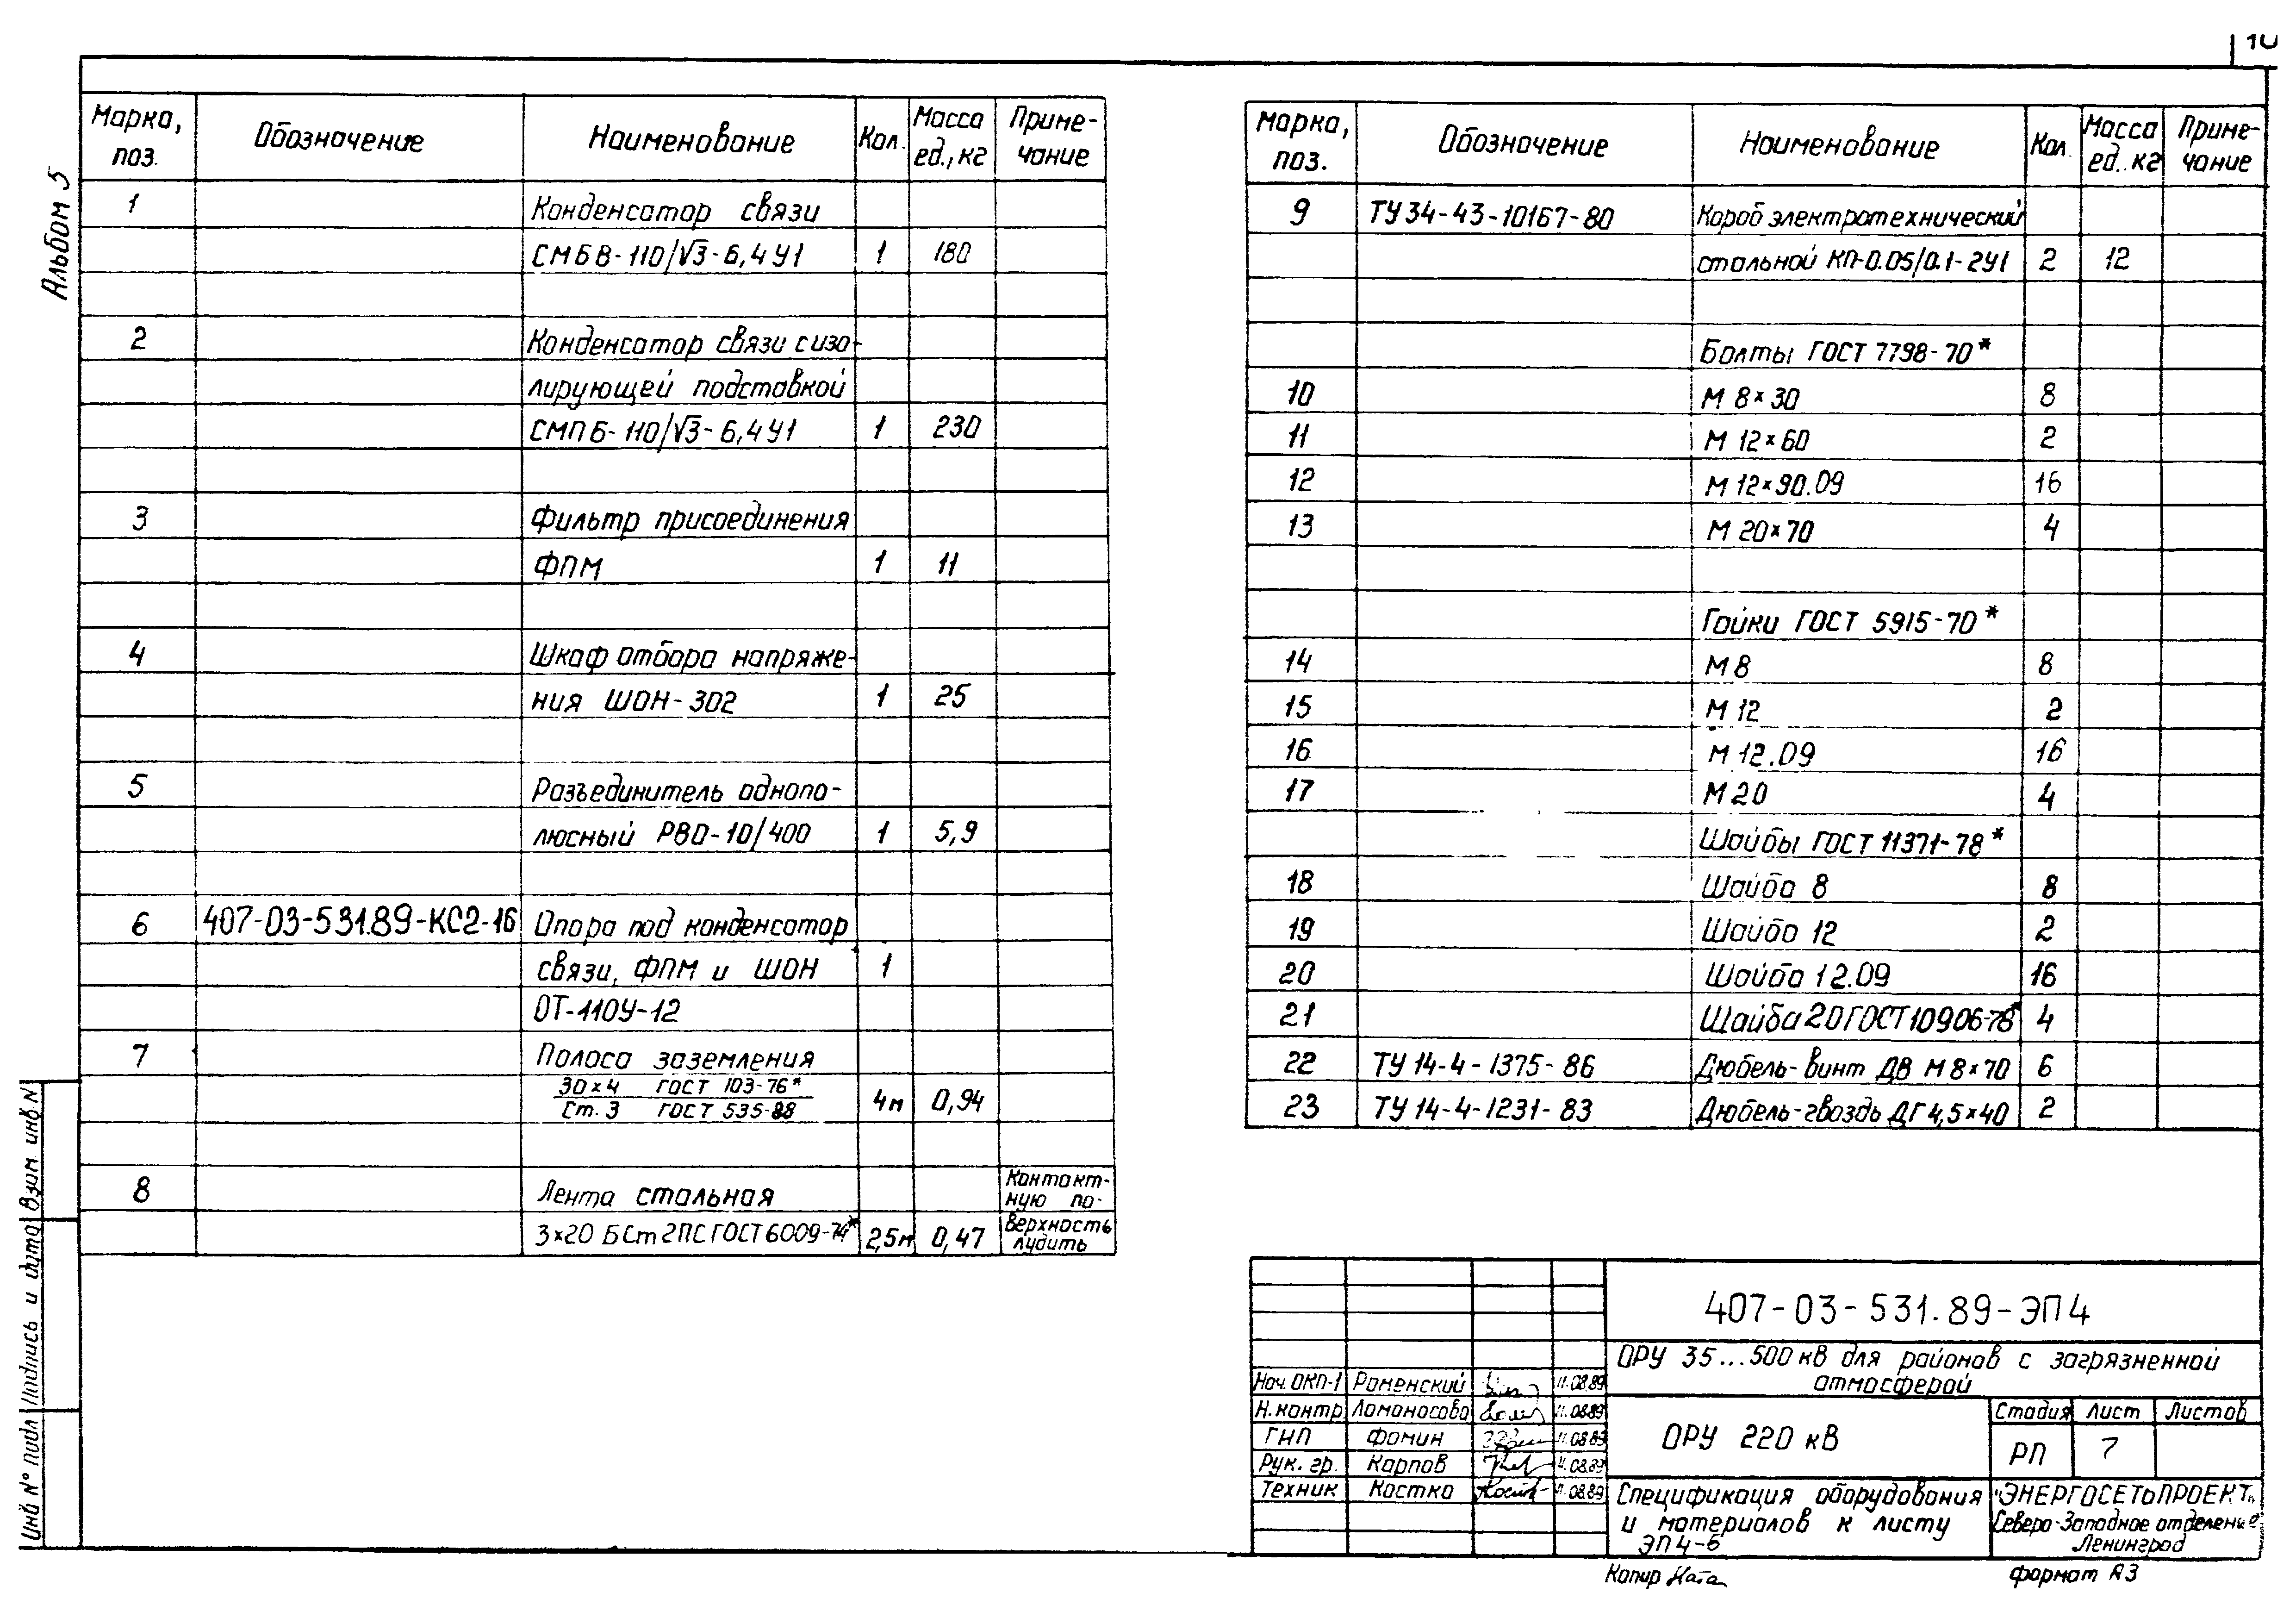 10
Альбом 5
Марка, поз. Обозначение Наименование Кол. Масса ед., кг Приме-чание
1 Конденсатор связи
СМБВ-110/√3-6,4У1 1 180
2 Конденсатор связи с изо-
лирующей подставкой
СМПБ-110/√3-6,4У1 1 230
3 Фильтр присоединения
ФПМ 1 11
4 Шкаф отбора напряже-
ния ШОН-302 1 25
5 Разъединитель однопо-
люсный РВО-10/400 1 5,9
6 407-03-531.89-КС2-16 Опора под конденсатор
связи, ФПМ и ШОН 1
ОТ-110У-12
7 Полоса заземления
30×4 ГОСТ 103-76*
Ст. 3 ГОСТ 535-88 4м 0,94
8 Лента стальная Контакт-ную по-
3×20 БСт2ПС ГОСТ 6009-74* 2,5м 0,47 верхность лудить
Марка, поз. Обозначение Наименование Кол. Масса ед., кг Приме-чание
9 ТУ34-43-10167-80 Короб электротехнический
стальной КП-0.05/0.1-2У1 2 12
Болты ГОСТ 7798-70*
10 М 8×30 8
11 М 12×60 2
12 М 12×90.09 16
13 М 20×70 4
Гайки ГОСТ 5915-70*
14 М 8 8
15 М 12 2
16 М 12.09 16
17 М 20 4
Шайбы ГОСТ 11371-78*
18 Шайба 8 8
19 Шайба 12 2
20 Шайба 12.09 16
21 Шайба 20 ГОСТ 10906-78* 4
22 ТУ 14-4-1375-86 Дюбель-винт ДВ М8×70 6
23 ТУ 14-4-1231-83 Дюбель-гвоздь ДГ 4,5×40 2
407-03-531.89-ЭП4
ОРУ 35...500 кВ для районов с загрязненной
атмосферой
Нач. ОКП-1 Роменский 11.08.89
Н. контр Ломоносова 11.08.89
ГНП Фомин 11.08.89
Рук. гр. Карпов 11.08.89
Техник Костко 11.08.89
ОРУ 220 кВ
Стадия Лист Листов
РП 7
Спецификация оборудования
и материалов к листу
ЭП4-6
"ЭНЕРГОСЕТЬПРОЕКТ"
Северо-Западное отделение
Ленинград
Копир Ната
формат А3
Инв № подл Подпись и дата Взам инв. N